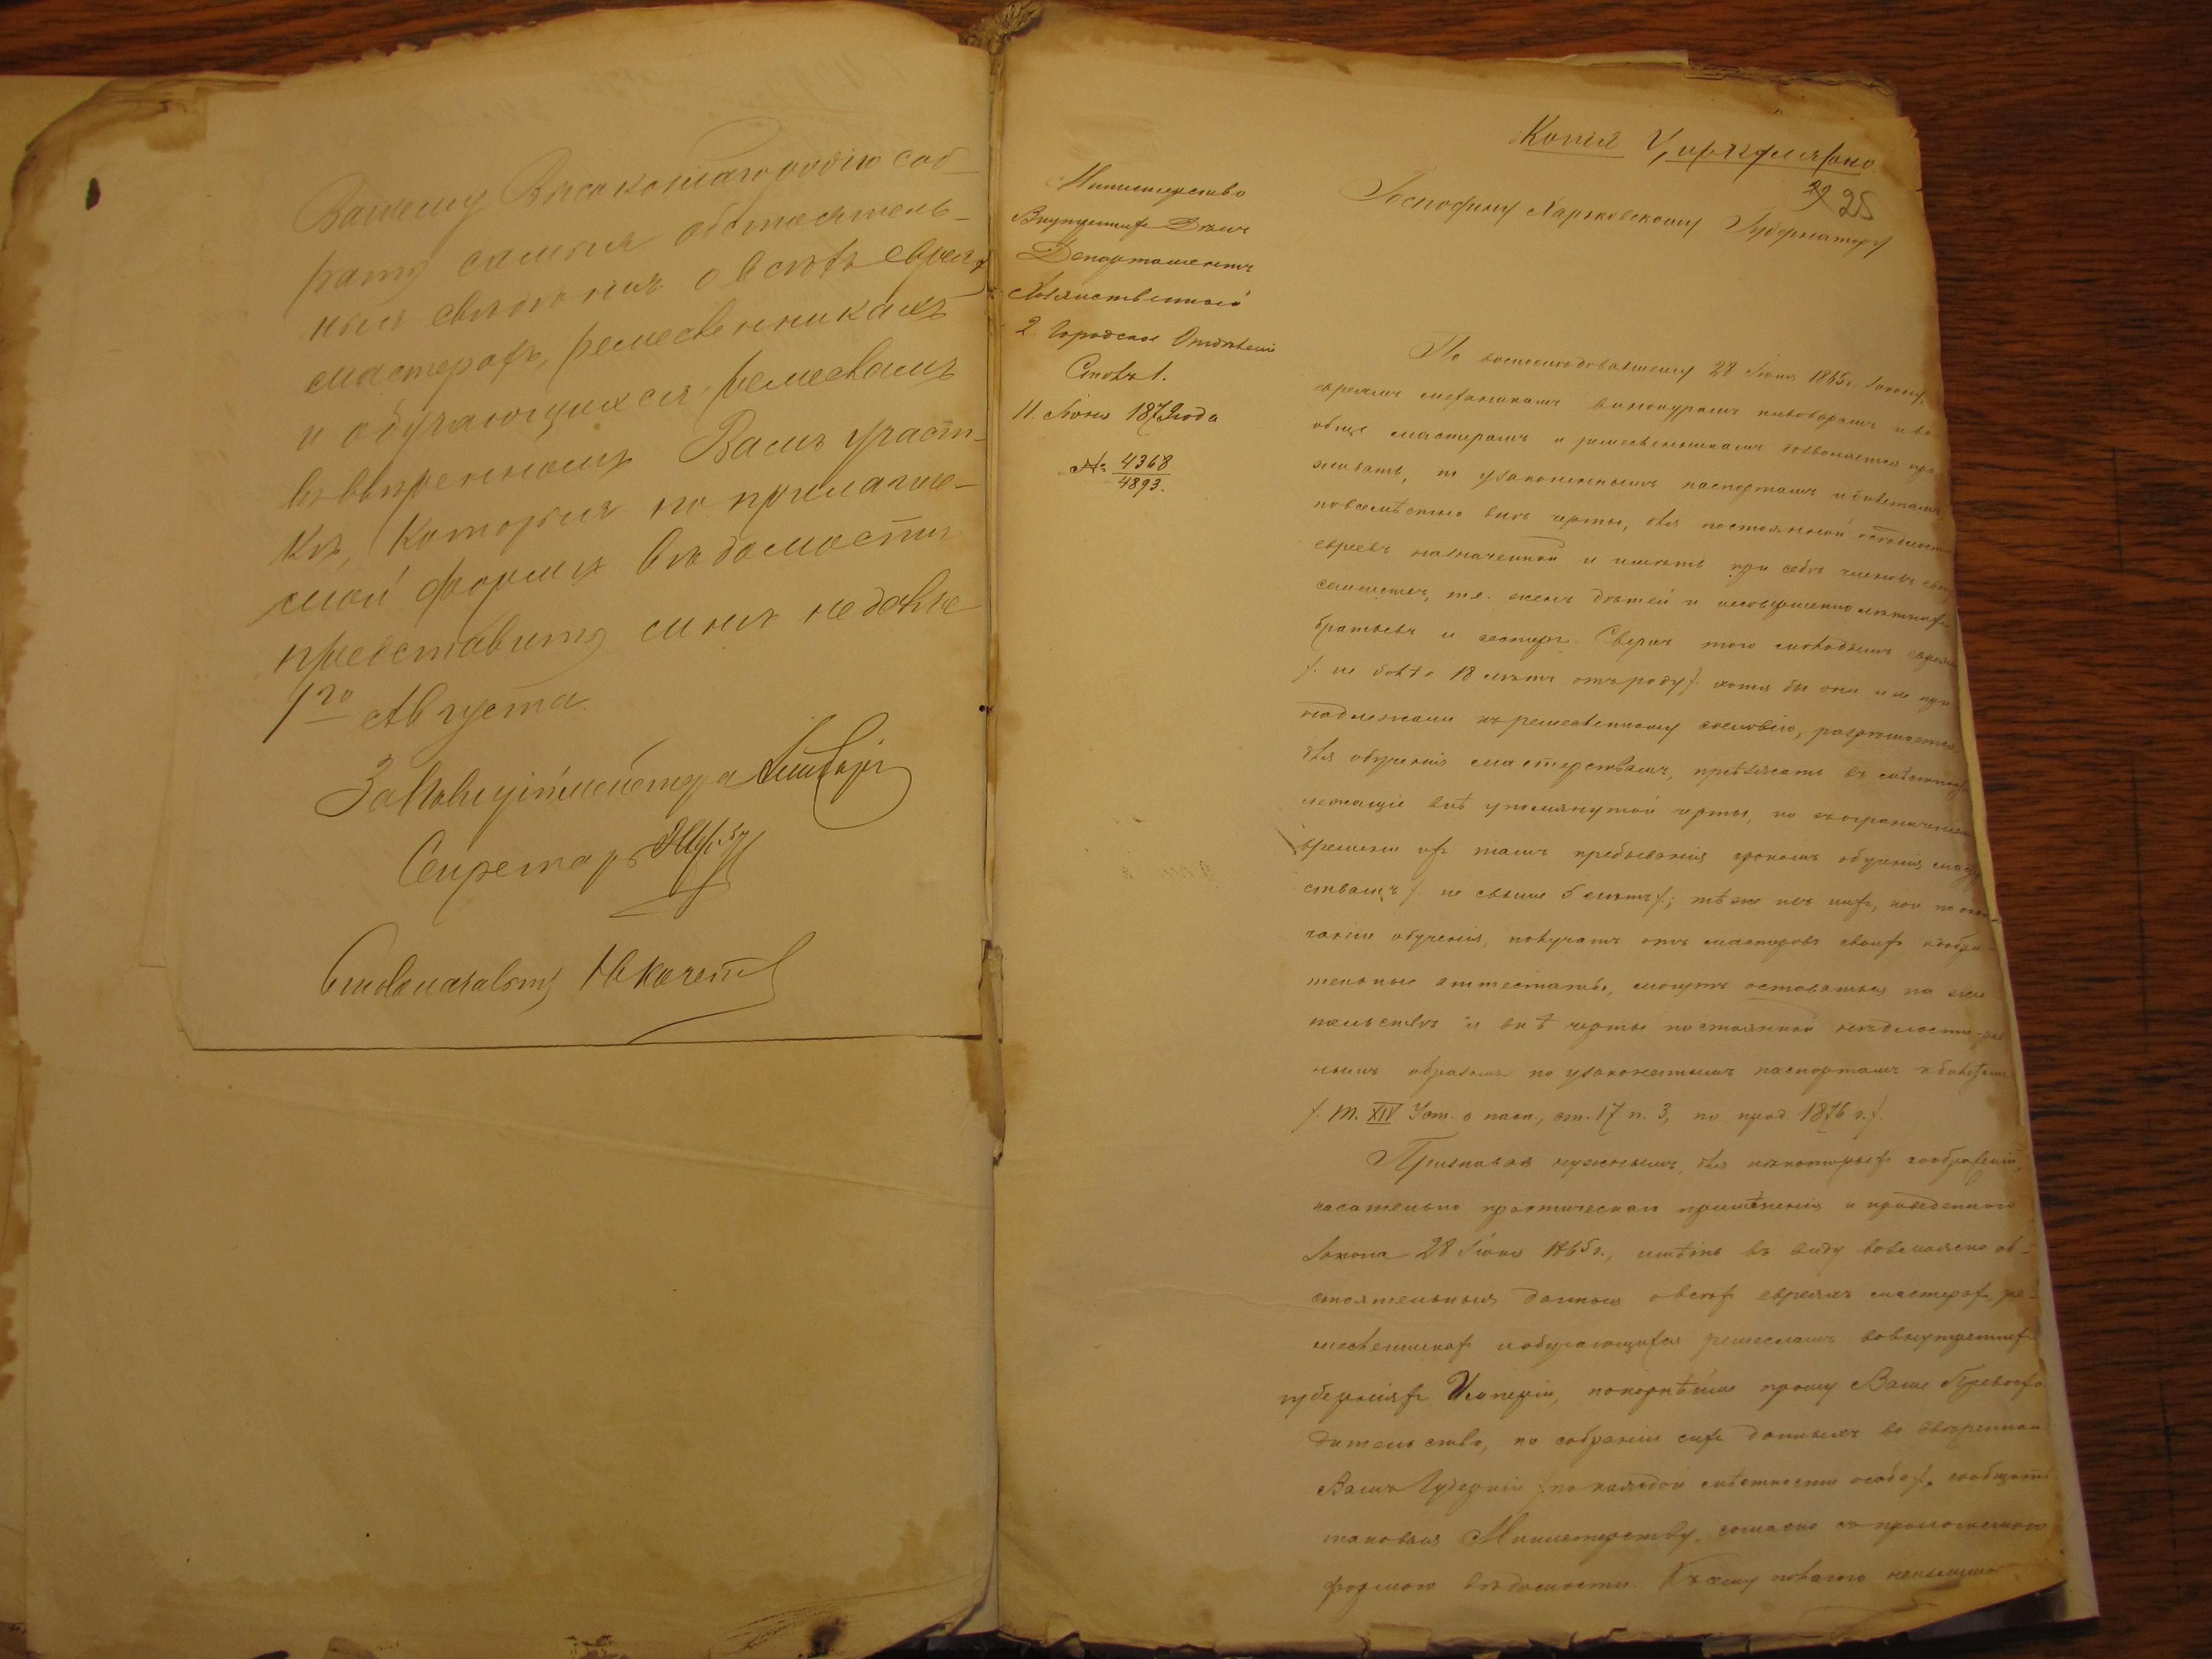 Вашему Высокоблагородію соб-
рать самыя обстоятель-
ныя свѣдѣнія о всѣхъ евреяхъ
мастерахъ, ремесленникахъ
и обучающихся ремесламъ
въ ввѣренномъ Вамъ участ-
кѣ, которыя по прилагае-
мой формѣ вѣдомости
представить мнѣ не далѣе
1го Августа.
За Полиціймейстера
Секретарь
Столоначальникъ
Копія Циркулярно.
22 25
Министерство
Внутреннихъ Дѣлъ
Департаментъ
Хозяйственный
2 Городское Отдѣленіе
Столъ 1.
11 Іюня 1879 года
№ 4368
4893.
Господину Харьковскому Губернатору
По воспослѣдовавшему 28 Іюня 1865 г. закону,
евреямъ механикамъ винокурамъ пивоварамъ и во-
обще мастерамъ и ремесленникамъ дозволяется про-
живать, по узаконеннымъ паспортамъ и билетамъ
повсемѣстно внѣ черты, для постоянной осѣдлости
евреевъ назначенной и имѣть при себѣ членовъ своихъ
семействъ, т.е. женъ дѣтей и несовершеннолѣтнихъ
братьевъ и сестеръ. Сверхъ того молодымъ евреямъ
/. не болѣе 18 лѣтъ отъ роду /. хотя бы они и не при
надлежали къ ремесленному сословію, разрѣшается,
для обученія мастерствамъ, пріѣзжать въ мѣстности
лежащіе внѣ упомянутой черты, но съ ограниченіемъ
времени ихъ тамъ пребыванія срокомъ обученія мастер
ствамъ /. не свыше 5 лѣтъ /.; тѣ же изъ нихъ, кои по окон
чаніи обученія, получатъ отъ мастеровъ своихъ одобри-
тельные аттестаты, могутъ оставаться на жи
тельствѣ и внѣ черты постоянной осѣдлости рав
нымъ образомъ по узаконеннымъ паспортамъ и билетамъ
/. т. XIV Уст. о пасп., ст. 17. п. 3, по прод. 1876 г. /.
Признавая нужнымъ, для нѣкоторыхъ соображеній,
касательно практическаго примѣненія и приведеннаго
закона 28 Іюня 1865 г., имѣть въ виду возможно об-
стоятельныя данныя о всѣхъ евреяхъ мастерахъ, ре-
месленникахъ и обучающихся ремесламъ во внутреннихъ
губерніяхъ Имперіи, покорнѣйше прошу Ваше Превосхо
дительство, по собраніи сихъ данныхъ во ввѣренной
Вамъ Губерніи /. по каждой мѣстности особо /. сообщить
таковыя Министерству, согласно съ приложенною
формою вѣдомости. Къ сему